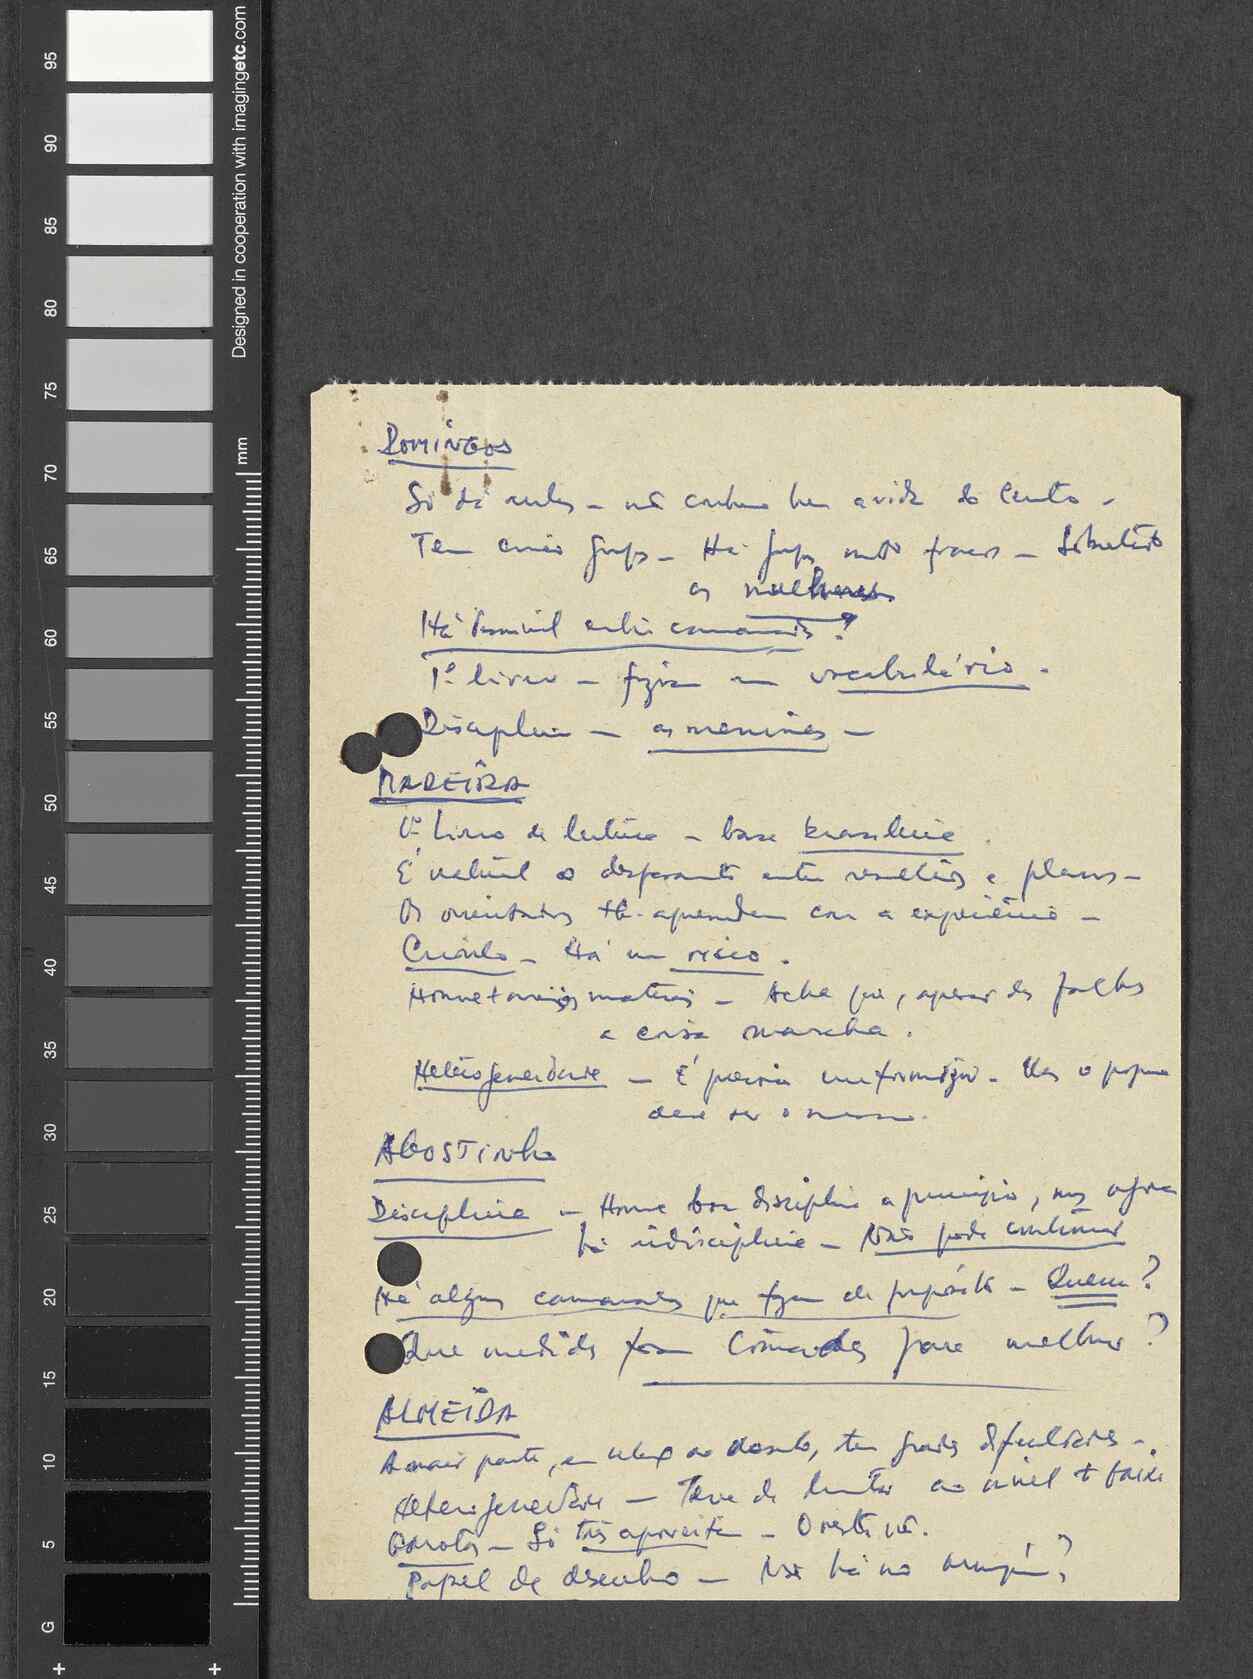 95
90
85
80
75
70
65
60
55
50
45
40
35
30
25
20
15
10
5
G
Designed in cooperation with imagingetc.com
mm
DOMINGOS
Só dá aulas – não conhece bem a vida do Centro –
Tem cinco grupos – Há grupos muito fracos – Sobretudo
as mulheres
Há Parsenil entre camaradas?
1º livro – fazia um vocabulário.
Disciplina – as meninas –
MADEIRA
1º Livro de leitura – base brasileira.
É natural o desfasamento entre resultados e planos –
Os orientados tb. aprendem com a experiência –
Crioulo – Há um risco.
Houve materiais – Acha que, apesar das falhas
a coisa marcha.
Heterogeneidade – É precisa uniformização. Mas o programa
deve ser o mesmo.
AGOSTINHO
Disciplina – Houve boa disciplina a princípio, mas agora
há indisciplina – Não pode continuar
Há alguns camaradas que fazem de propósito – Quem?
Que medidas foram tomadas para melhorar?
ALMEIDA
A maior parte, em relação ao desenho, tem grandes dificuldades –
Heterogeneidade – Teve de limitar ao nível + baixo
Garotos – Só três aproveitam – O resto não.
Papel de desenho – Não há no armazém?